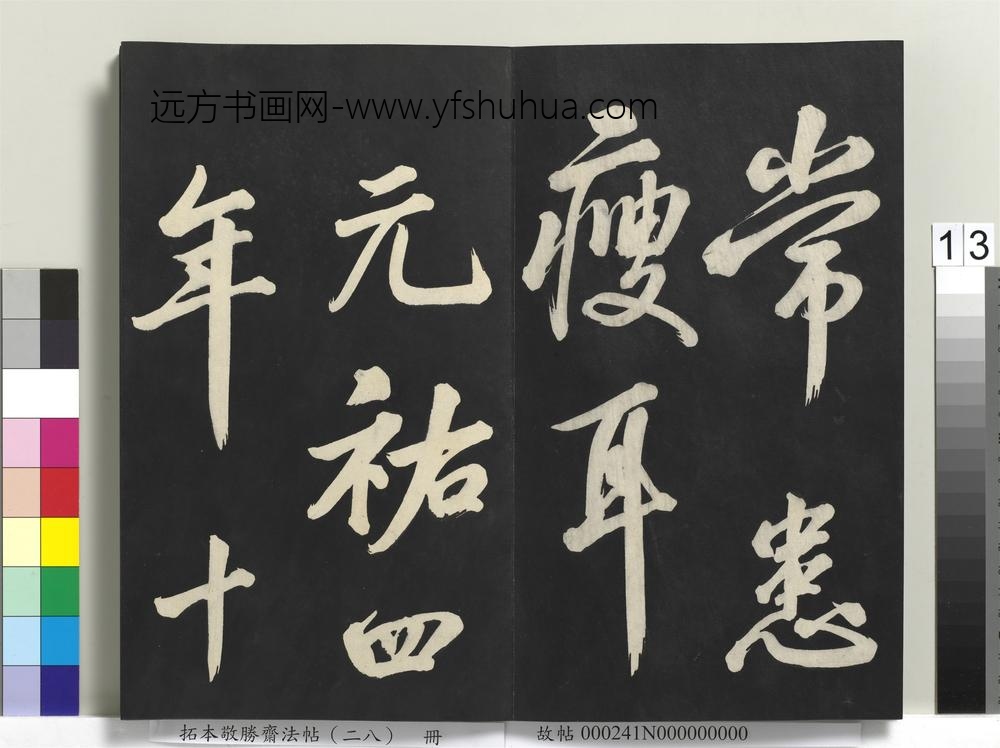 远方书画网-www.yfshuhua.com
常患
瘦耳
元祐四
年十
13
拓本敬勝齋法帖（二八） 冊
故帖 000241N000000000